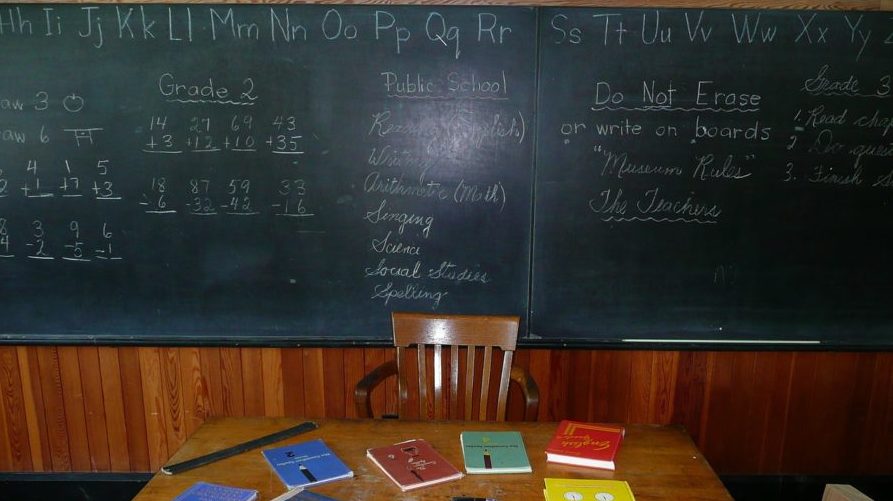 Hh Ii Jj Kk Ll Mm Nn Oo Pp Qq Rr Ss Tt Uu Vv Ww Xx Yy
aw 3
raw 6
4 1 5
+1 +7 +3
3 9 6
-2 -5 -1
Grade 2
14 27 69 43
+3 +12 +10 +35
18 87 59 33
-6 -32 -42 -16
Public School
Reading (English)
Writing
Arithmetic (Math)
Singing
Science
Social Studies
Spelling
Do Not Erase
or write on boards
"Museum Rules"
The Teachers
Grade 3
1. Read chap
2 Do ques
3. Finish S
English